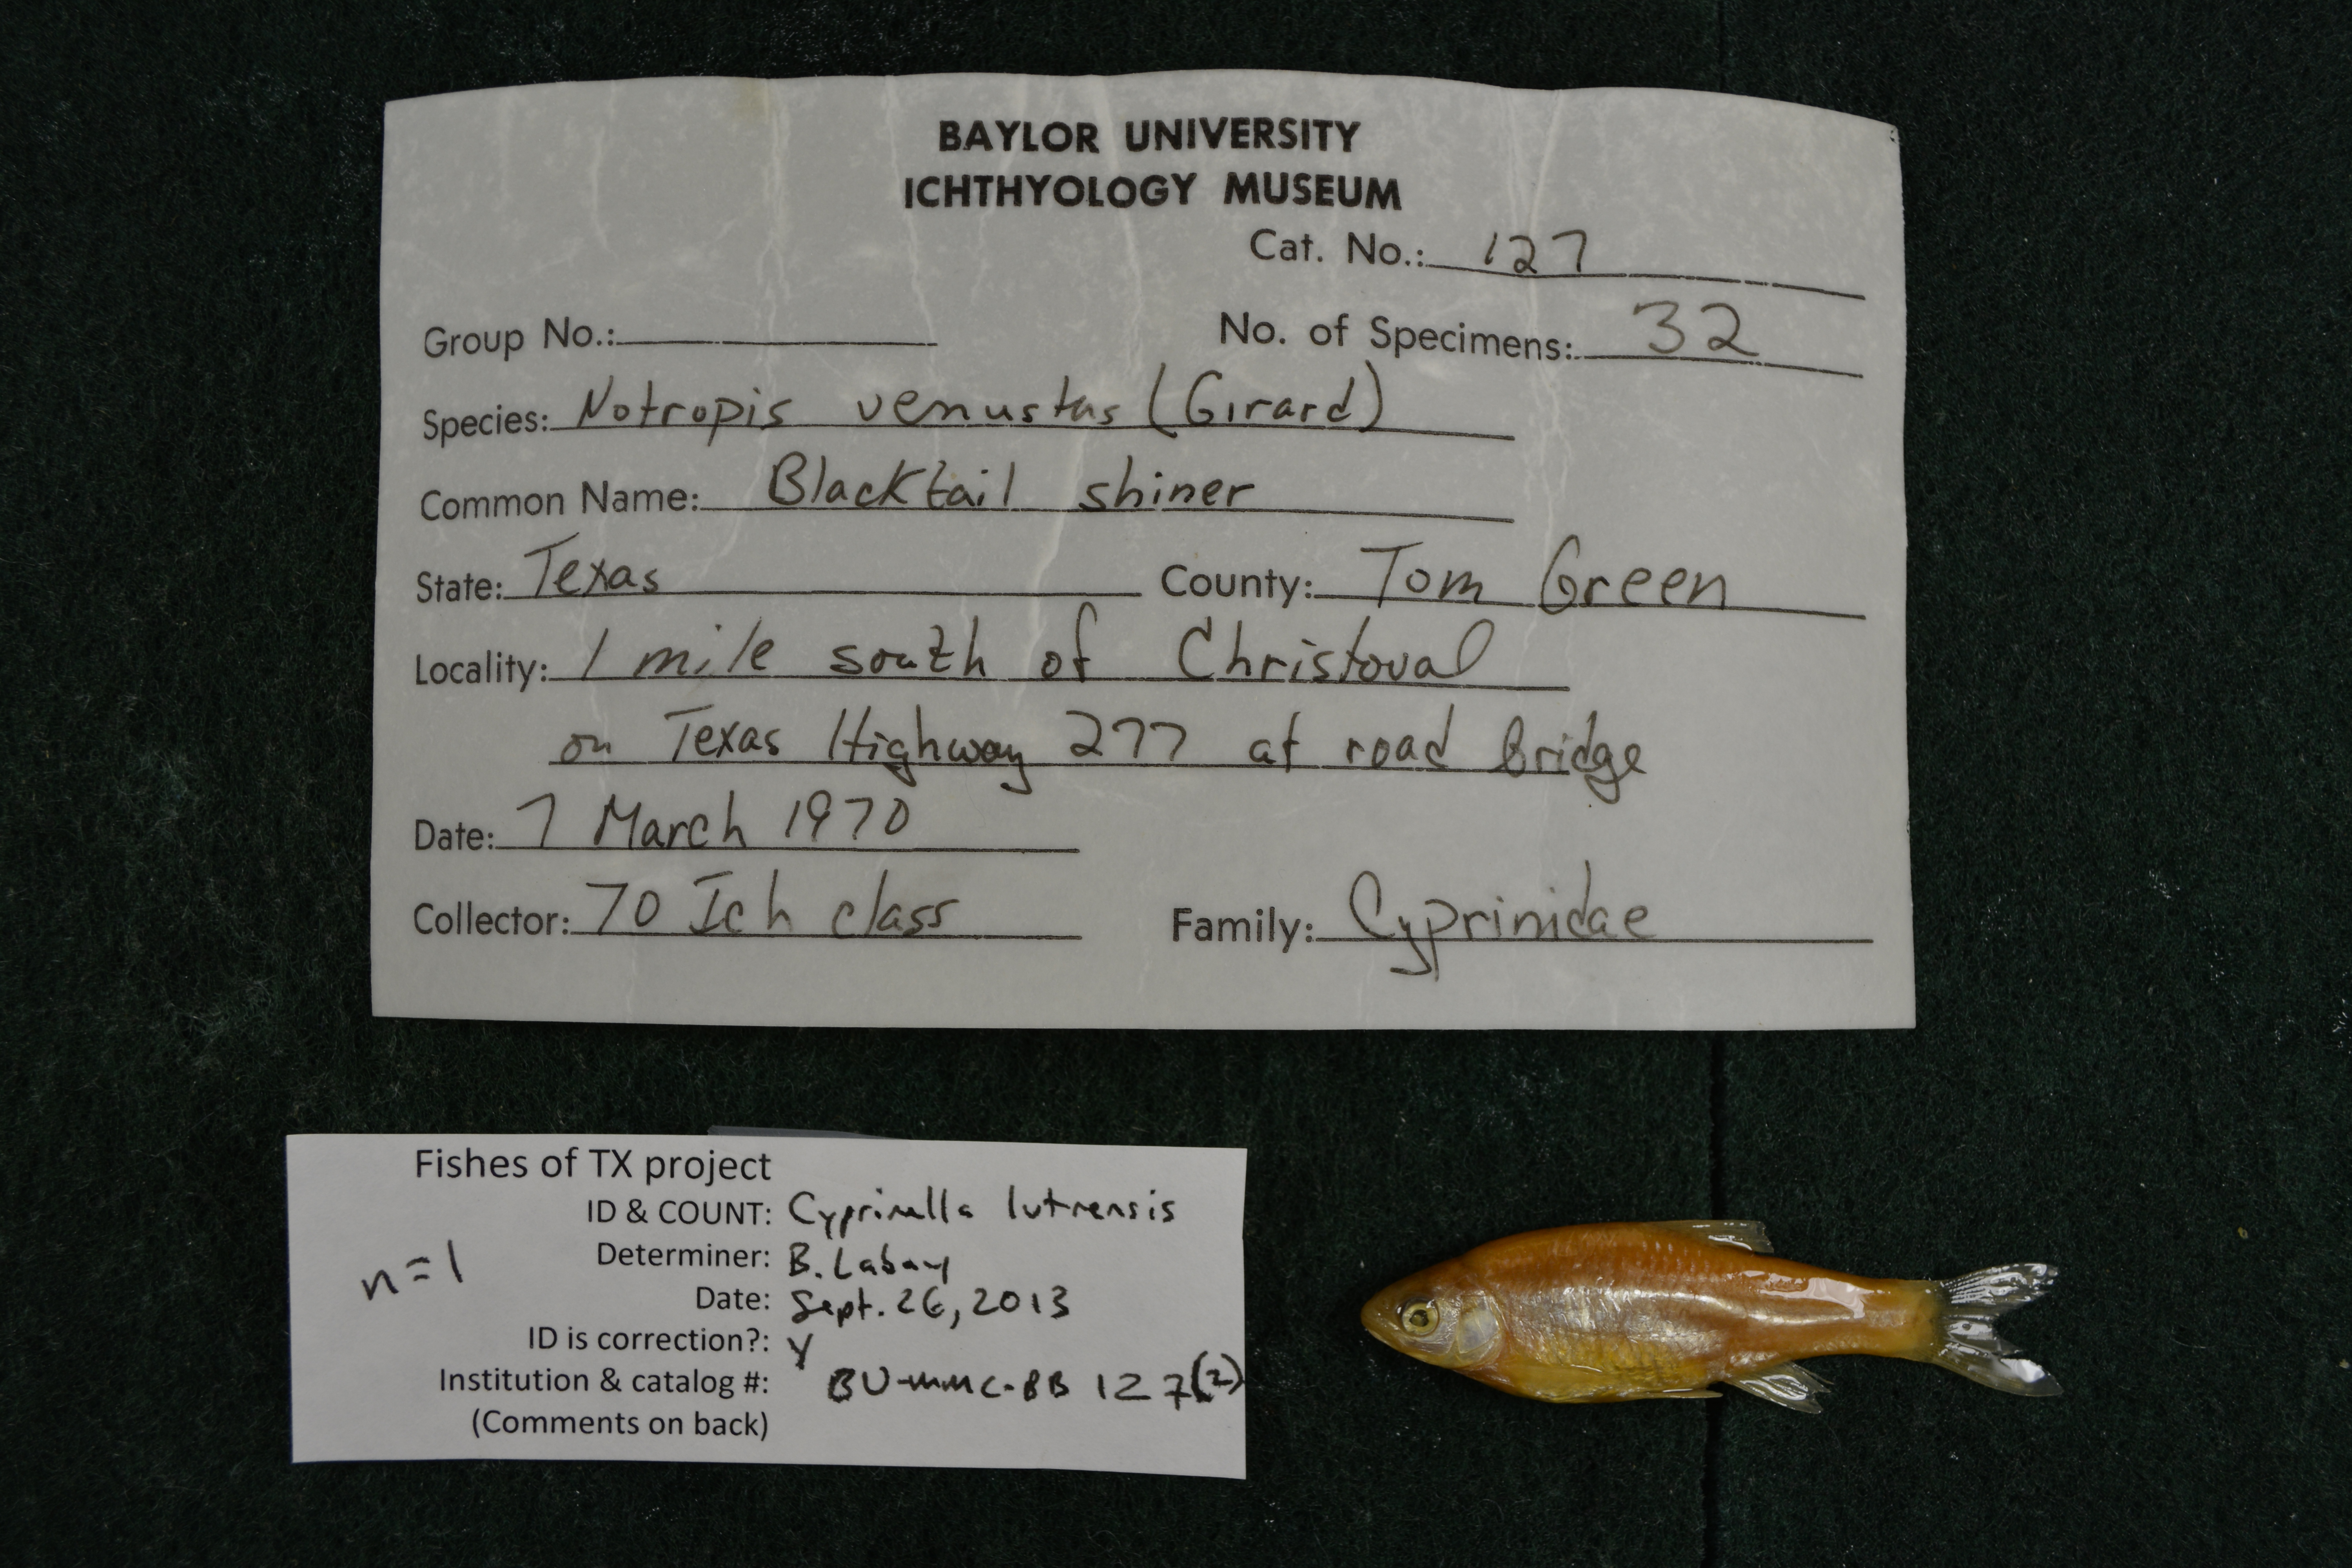 BAYLOR UNIVERSITY
ICHTHYOLOGY MUSEUM
Cat. No.: 127
Group No.: No. of Specimens: 32
Species: Notropis venustus (Girard)
Common Name: Blacktail shiner
State: Texas County: Tom Green
Locality: 1 mile south of Christoval
on Texas Highway 277 at road bridge
Date: 7 March 1970
Collector: 70 Ich class Family: Cyprinidae
Fishes of TX project
ID & COUNT: Cyprinella lutrensis
n=1
Determiner: B. Labay
Date: Sept. 26, 2013
ID is correction?: Y
Institution & catalog #: BU-MMC-BB 127(2)
(Comments on back)